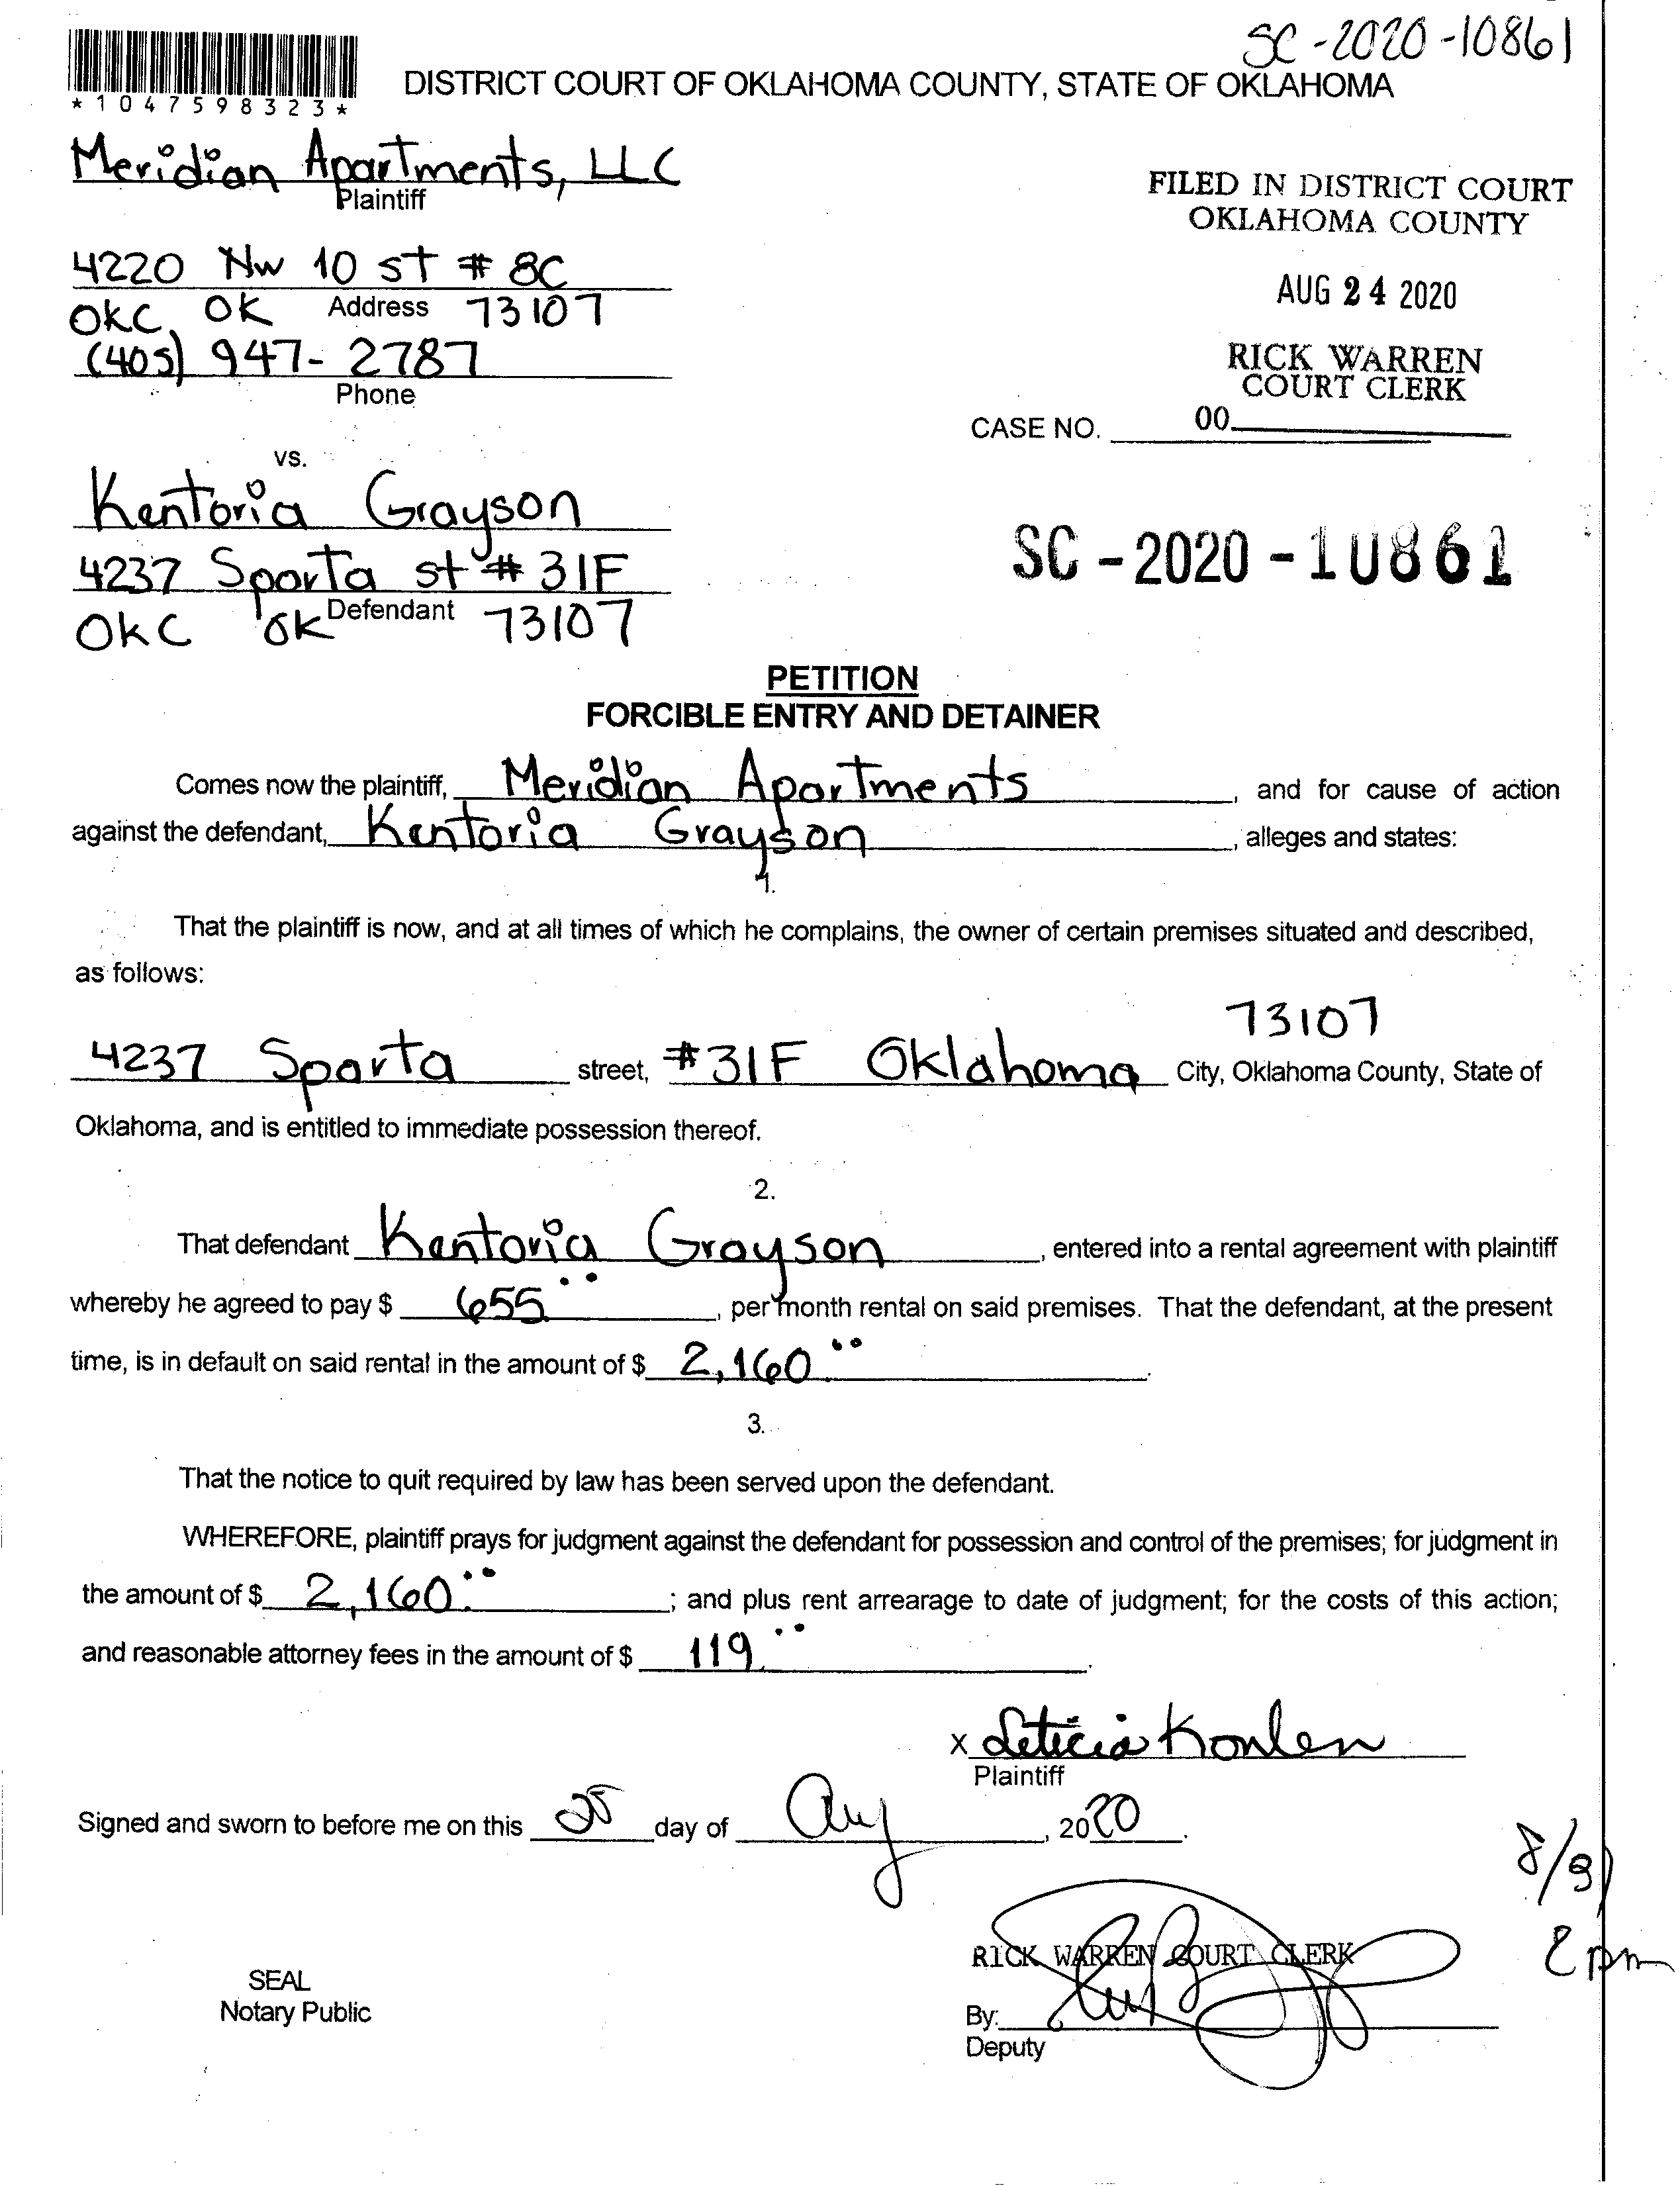 SC-2020-10861
*1047598323*
DISTRICT COURT OF OKLAHOMA COUNTY, STATE OF OKLAHOMA
Meridian Apartments, LLC
Plaintiff
4220 NW 10 st # 8C
Address
OKC, OK 73107
(405) 947-2787
Phone
FILED IN DISTRICT COURT
OKLAHOMA COUNTY
AUG 24 2020
RICK WARREN
COURT CLERK
CASE NO. 00
vs.
Kentoria Grayson
4237 Sparta st # 31F
Defendant
OKC OK 73107
SC-2020-10861
PETITION
FORCIBLE ENTRY AND DETAINER
Comes now the plaintiff, Meridian Apartments, and for cause of action
against the defendant, Kentoria Grayson, alleges and states:
1.
That the plaintiff is now, and at all times of which he complains, the owner of certain premises situated and described,
as follows:
73107
4237 Sparta street, #31F Oklahoma City, Oklahoma County, State of
Oklahoma, and is entitled to immediate possession thereof.
2.
That defendant Kentoria Grayson, entered into a rental agreement with plaintiff
whereby he agreed to pay $ 655.00, per month rental on said premises. That the defendant, at the present
time, is in default on said rental in the amount of $ 2,160.00.
3.
That the notice to quit required by law has been served upon the defendant.
WHEREFORE, plaintiff prays for judgment against the defendant for possession and control of the premises; for judgment in
the amount of $ 2,160.00; and plus rent arrearage to date of judgment; for the costs of this action;
and reasonable attorney fees in the amount of $ 119.00.
X Leticia
Plaintiff
Signed and sworn to before me on this 25 day of Aug, 2020.
8/31
2pm
RICK WARREN COURT CLERK
SEAL
Notary Public
By:
Deputy